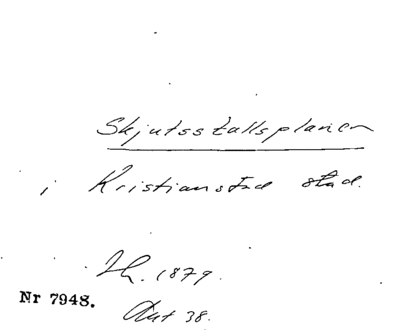 Skjutsstallsplanen
i Kristianstad stad.
1879.
Nr 7948.
Akt 38.